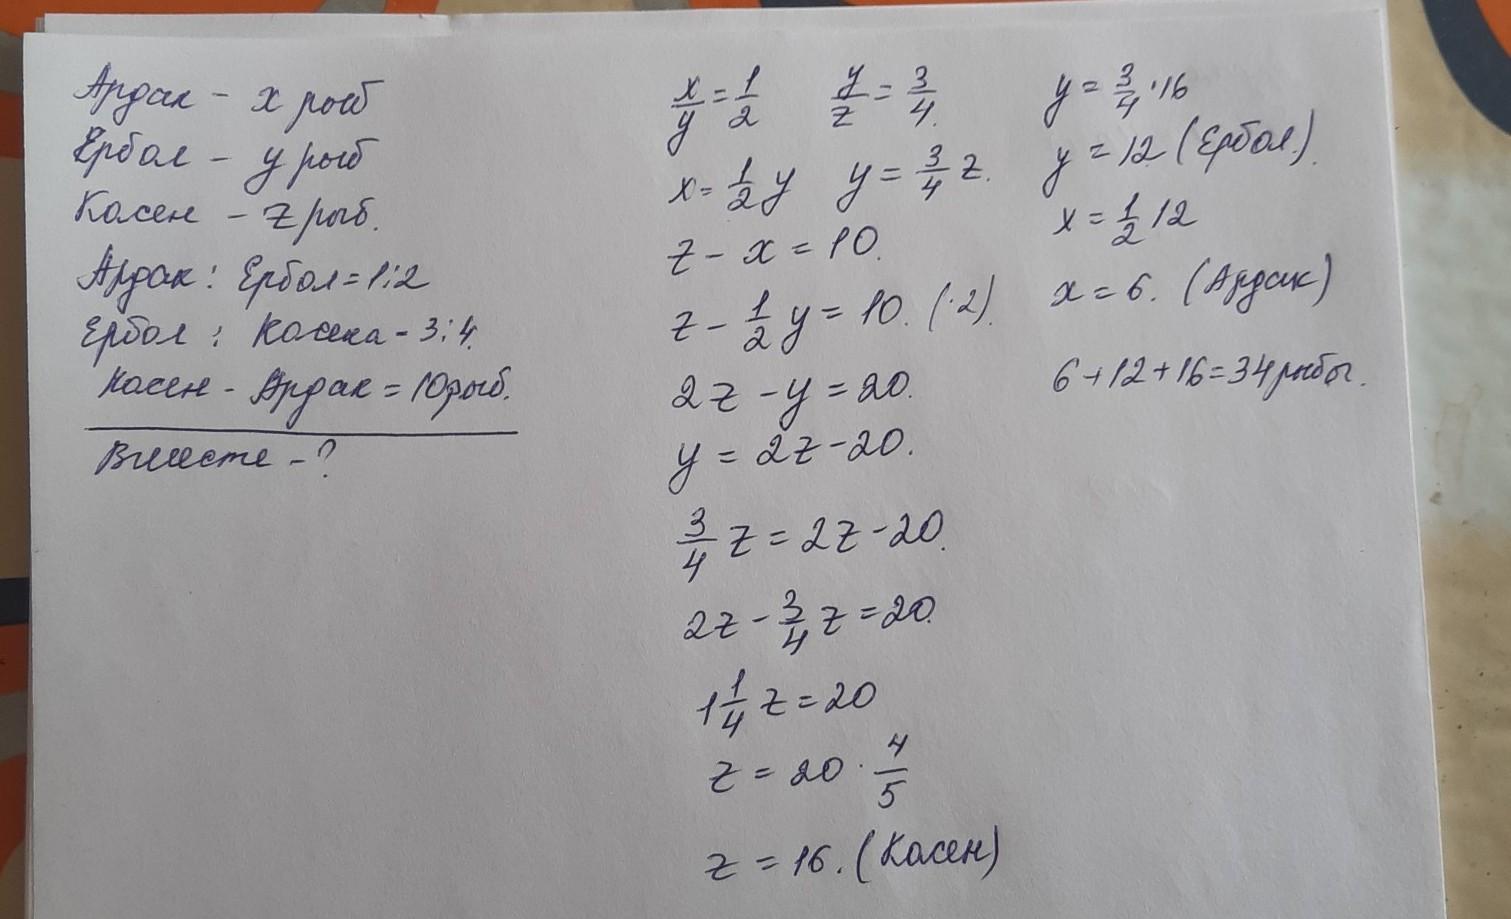 Ардак - x рыб
Ербол - y рыб
Касен - z рыб.
Ардак : Ербол = 1:2
Ербол : Касена - 3:4.
Касен - Ардак = 10 рыб.
Вместе - ?
x/y = 1/2 y/z = 3/4.
x = 1/2 y y = 3/4 z.
z - x = 10.
z - 1/2 y = 10. (·2).
2z - y = 20.
y = 2z - 20.
3/4 z = 2z - 20.
2z - 3/4 z = 20.
1 1/4 z = 20
z = 20 · 4/5
z = 16. (Касен)
y = 3/4 · 16
y = 12 (Ербол.).
x = 1/2 12
x = 6. (Ардак)
6 + 12 + 16 = 34 рыбы.